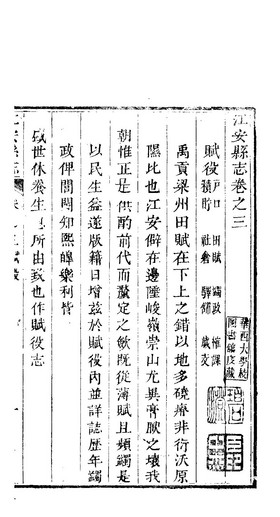 江安縣志卷之三
賦役 戶口 田賦 蠲政 榷課
積貯 社倉 驛鋪 歲支
禹貢梁州田賦在下上之錯以地多磽瘠非衍沃原
隰比也江安僻在邊陲峻嶺崇山尤異膏腴之壤我
朝惟正是供酌前代而釐定之斂既從薄賦且頻蠲是
以民生益遂版籍日增茲於賦役內並詳誌歷年蠲
政俾閭閻知熙皥樂利皆
盛世休養生息所由致也作賦役志
華西大學校
圖書館庋藏